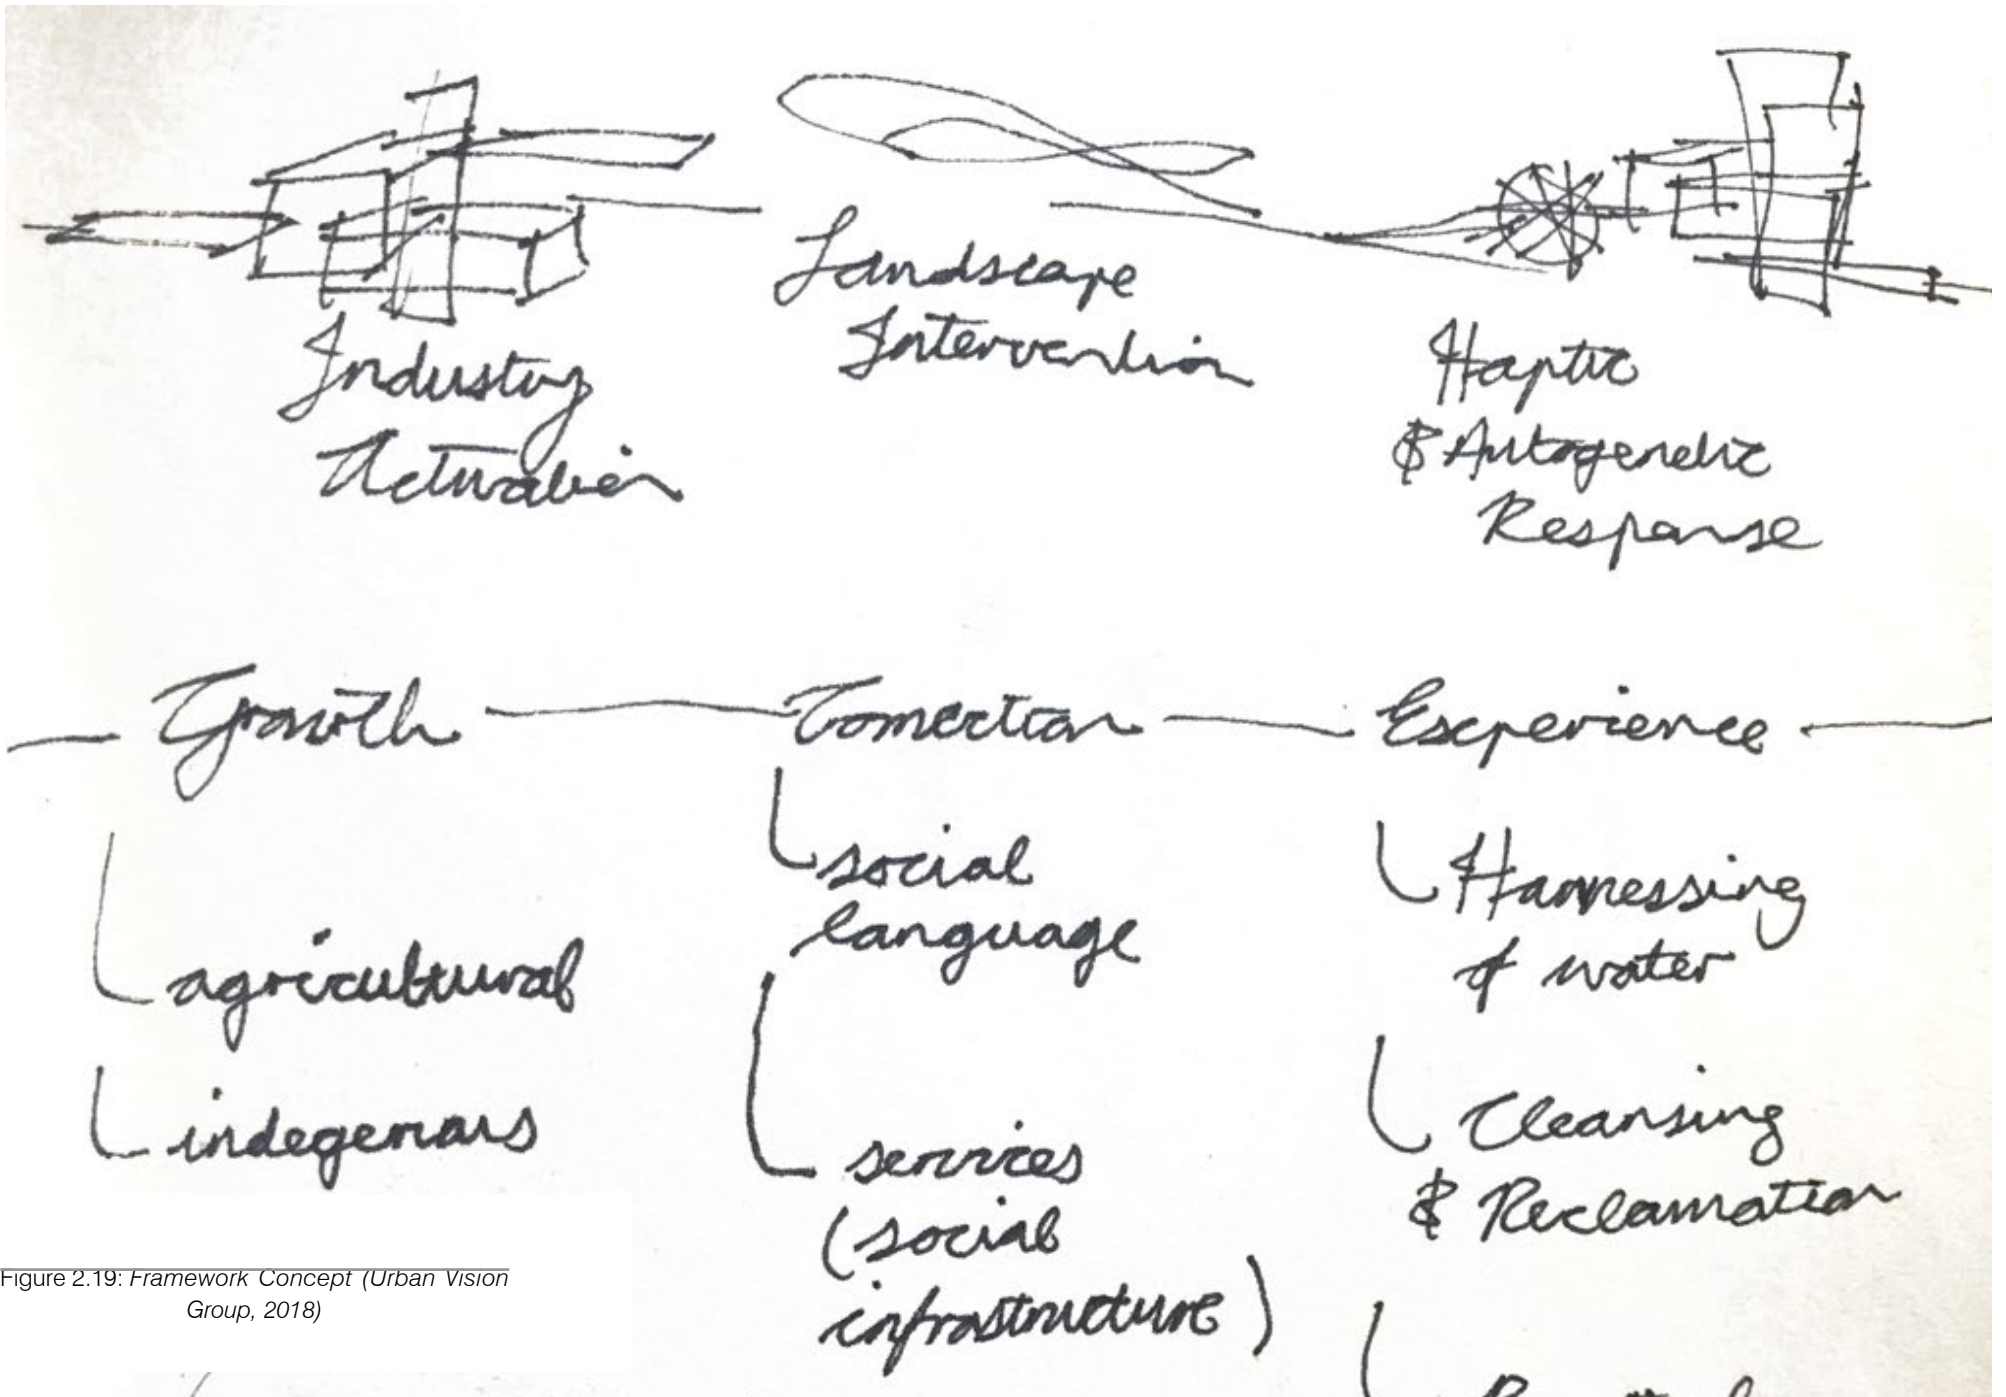 Industry
Activation
Landscape
Intervention
Haptic
& Autogenetic
Response
Growth
Connection
Experience
agricultural
indegenous
social
language
services
(social
infrastructure)
Harnessing
of water
Cleansing
& Reclamation
Figure 2.19: Framework Concept (Urban Vision
Group, 2018)